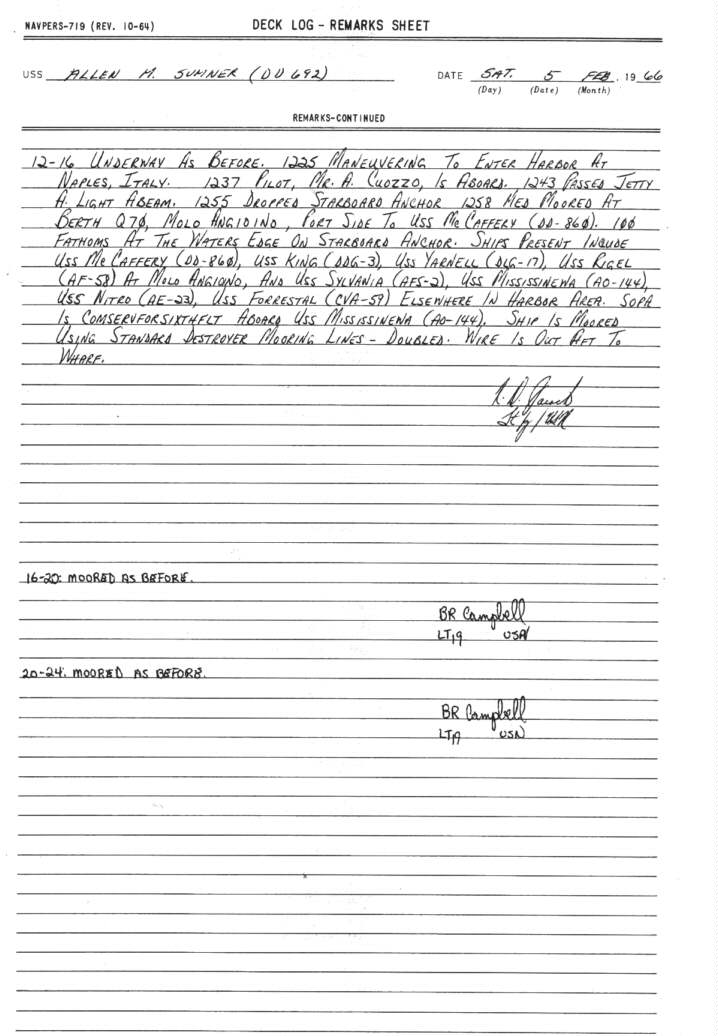 NAVPERS-719 (REV. 10-64) DECK LOG – REMARKS SHEET
USS ALLEN M. SUMNER (DD 692) DATE SAT. 5 FEB. 1966
(Day) (Date) (Month)
REMARKS-CONTINUED
12-16 UNDERWAY AS BEFORE. 1225 MANEUVERING TO ENTER HARBOR AT
NAPLES, ITALY. 1237 PILOT, MR. A. CUOZZO, IS ABOARD. 1243 PASSED JETTY
A. LIGHT ABEAM. 1255 DROPPED STARBOARD ANCHOR 1258 MED MOORED AT
BERTH Q7Ø, MOLO ANGIOINO, PORT SIDE TO USS McCAFFERY (DD-86Ø). 1ØØ
FATHOMS AT THE WATERS EDGE ON STARBOARD ANCHOR. SHIPS PRESENT INCLUDE
USS McCAFFERY (DD-86Ø), USS KING (DDG-3), USS YARNELL (DLG-17), USS RIGEL
(AF-58) AT MOLO ANGIONO, AND USS SYLVANIA (AFS-2), USS MISSISSINEWA (AO-144),
USS NITRO (AE-23), USS FORRESTAL (CVA-59) ELSEWHERE IN HARBOR AREA. SOPA
IS COMSERVFORSIXTHFLT ABOARD USS MISSISSINEWA (AO-144). SHIP IS MOORED
USING STANDARD DESTROYER MOORING LINES – DOUBLED. WIRE IS OUT AFT TO
WHARF.
16-20: MOORED AS BEFORE.
BR Campbell
LTJG USN
20-24: MOORED AS BEFORE.
BR Campbell
LTJG USN